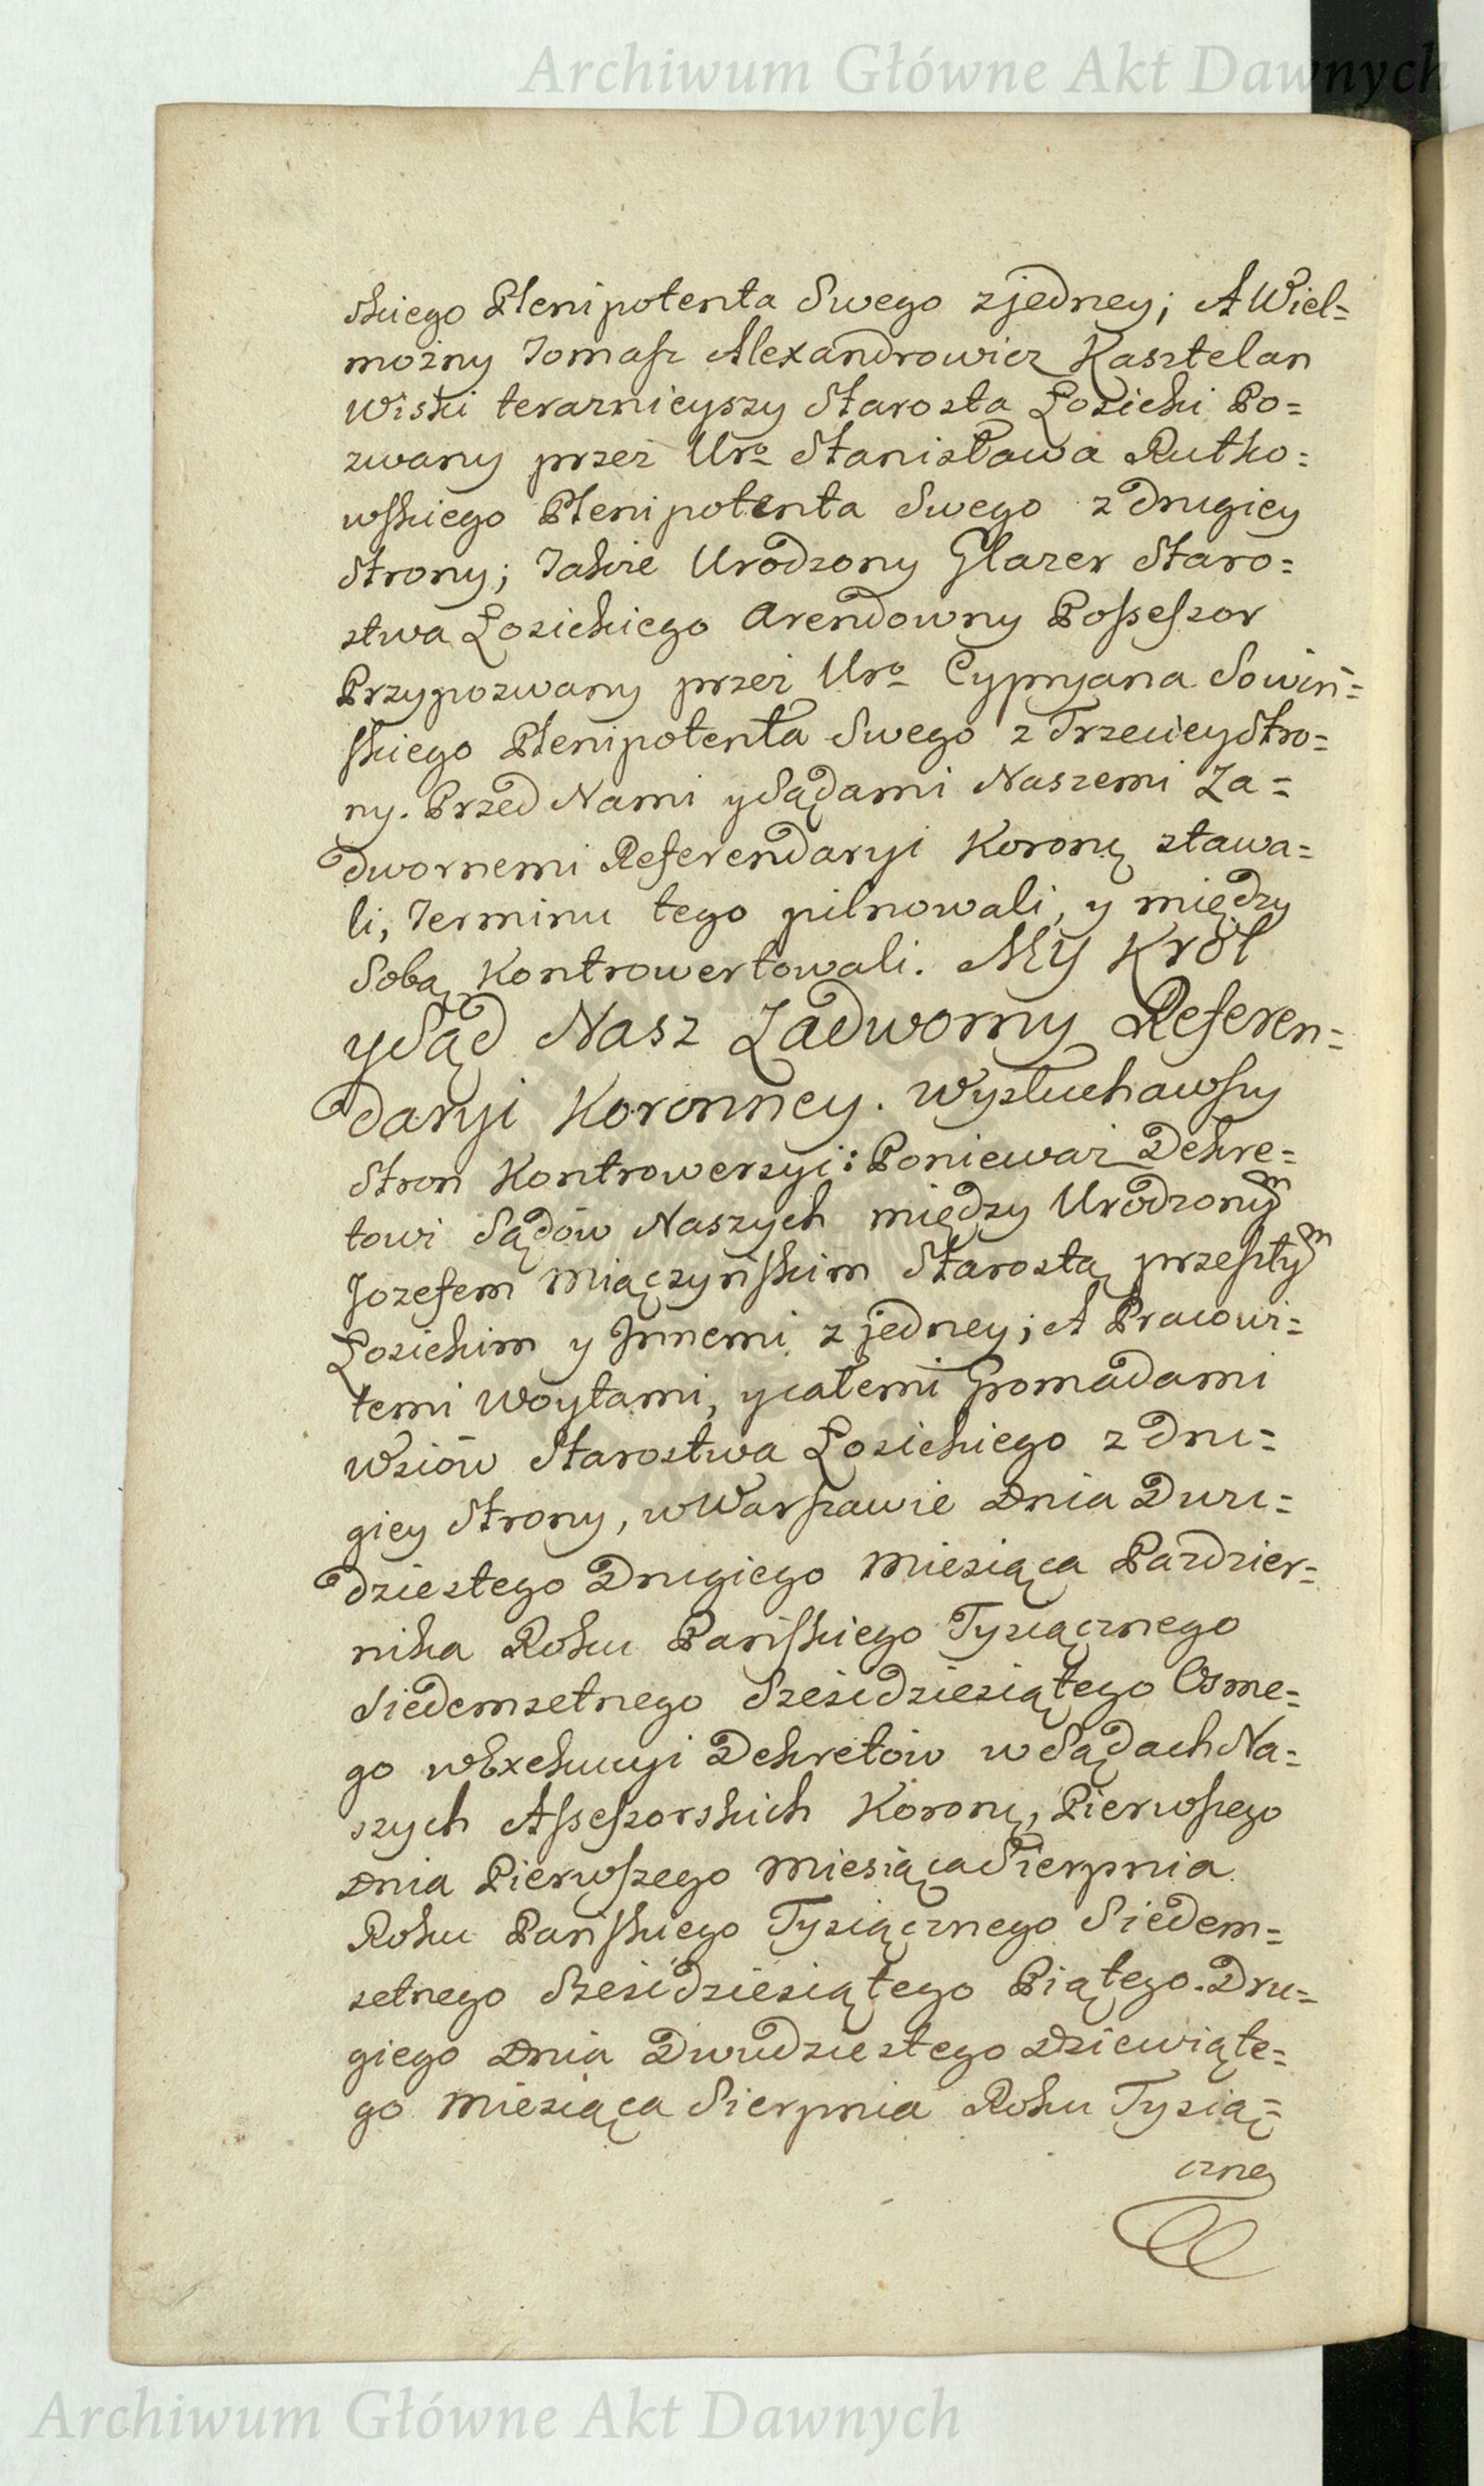 Archiwum Główne Akt Dawnych
skiego Plenipotenta Swego z jedney; A Wiel=
możny Tomasz Alexandrowicz Kasztelan
Wiski teraznieyszy Starosta Łosicki Po=
zwany przez Uro Stanisława Rutko=
wskiego Plenipotenta Swego z drugiey
Strony; Takze Urodzony Glazer Staro=
stwa Łosickiego Arendowny Possessor
Przypozwany przez Uro Cypryana Sowiń=
skiego Plenipotenta Swego z Trzeciey Stro=
ny. Przed Nami y Sądami Naszemi Za=
dwornemi Referendaryi Korony stawa=
li, Terminu tego pilnowali, y między
Sobą Kontrowertowali. My Król
y Sąd Nasz Zadworny Referen=
daryi Koronney. Wysłuchawszy
Stron Kontrowersyi: Ponieważ Dekre=
towi Sądów Naszych między Urodzonym
Jozefem Miączyńskim Starostą przeszłym
Łosickim y Innemi z jedney; A Pracowi=
temi Woytami, y całemi Gromadami
Wsiów Starostwa Łosickiego z dru=
giey Strony, w Warszawie Dnia Dwu=
dziestego Drugiego Miesiąca Pazdzier=
nika Roku Pańskiego Tysiącznego
Siedemsetnego Sześćdziesiątego Osme=
go w Exekucyi Dekretów w Sądach Na=
szych Assessorskich Korony, Pierwszego
Dnia Pierwszego Miesiąca Sierpnia
Roku Pańskiego Tysiącznego Siedem=
setnego Sześćdziesiątego Piątego. Dru=
giego Dnia Dwudziestego Dziewiąte=
go Miesiąca Sierpnia Roku Tysią=
czne
Archiwum Główne Akt Dawnych